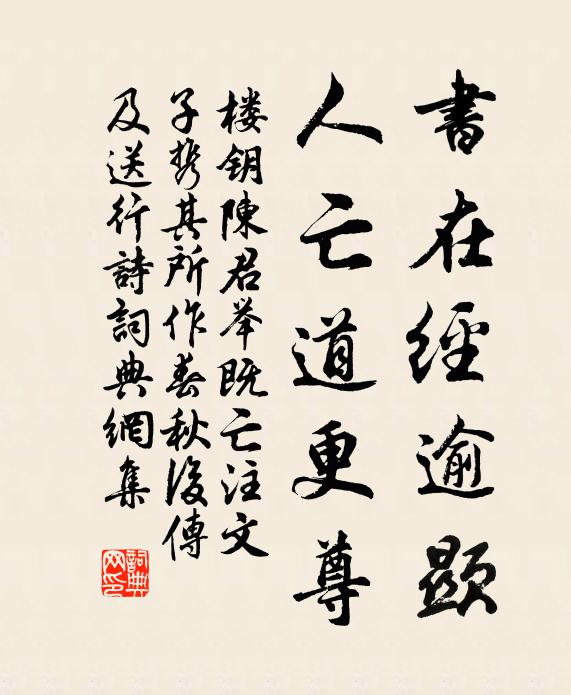 書在經逾顯
人亡道更尊
楼钥陳君举既亡汪文
子携其所作春秋後傳
及送行詩詞典網集
詞典网印